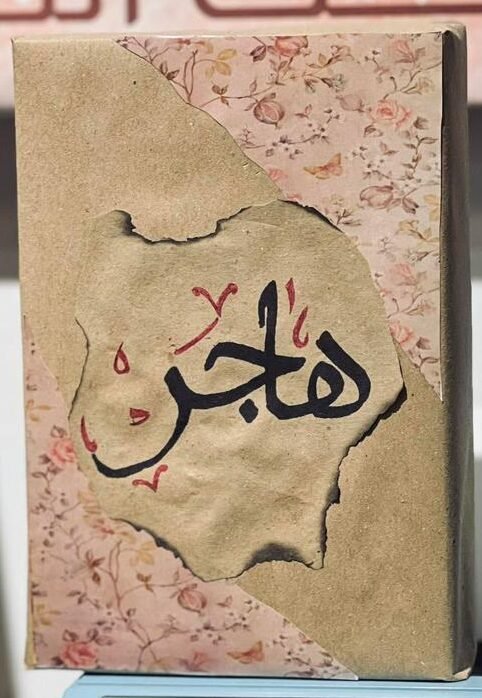 هاجر